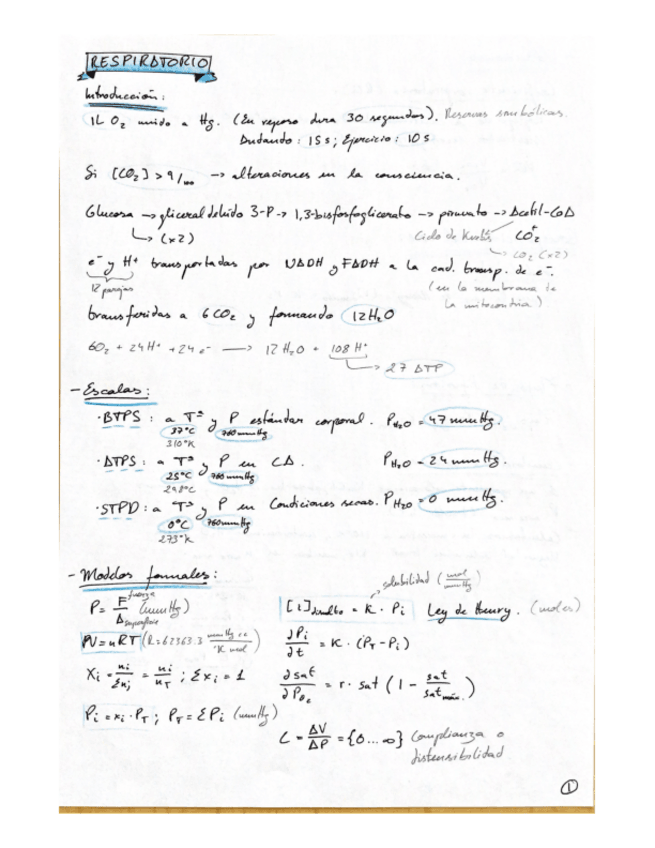 RESPIRATORIO
Introducción:
1L O₂ unido a Hg. (En reposo dura 30 segundos). Reservas simbólicas.
Andando: 15s; Ejercicio: 10s
Si [CO₂] > 9/₀₀ → alteraciones en la consciencia.
Glucosa → gliceraldehido 3-P → 1,3-bisfosfoglicerato → piruvato → Acetil-CoA
↳ (x2) Ciclo de Krebs CO₂
↳ CO₂ (x2)
e⁻ y H⁺ transportadas por NADH y FADH a la cad. transp. de e⁻.
12 parejas (en la membrana de
la mitocondria)
transferidas a 6 CO₂ y formando 12 H₂O
6O₂ + 24H⁺ + 24e⁻ → 12 H₂O + 108 H⁺
↳ 27 ATP
- Escalas:
· BTPS: a Tª y P estándar corporal. P H₂O = 47 mmHg.
37°C 760 mmHg
310°K
· ATPS: a Tª y P en CA. P H₂O = 24 mmHg.
25°C 760 mmHg
298°K
· STPD: a Tª y P en Condiciones secas. P H₂O = 0 mmHg.
0°C 760 mmHg
273°K
- Modelos formales:
solubilidad (mol/mmHg)
P = F/A (mmHg) fuerza superficie [i] disuelto = K · Pi Ley de Henry. (moles)
PV = nRT (R = 62363.3 mmHg cc/°K mol) ∂Pi/∂t = K · (PT - Pi)
Xi = ni/Σnj = ni/nT ; Σxi = 1 ∂sat/∂PO₂ = r · sat (1 - sat/sat máx.)
Pi = xi · PT ; PT = ΣPi (mmHg)
C = ΔV/ΔP = {0 ... ∞} Complianza o
distensibilidad
1